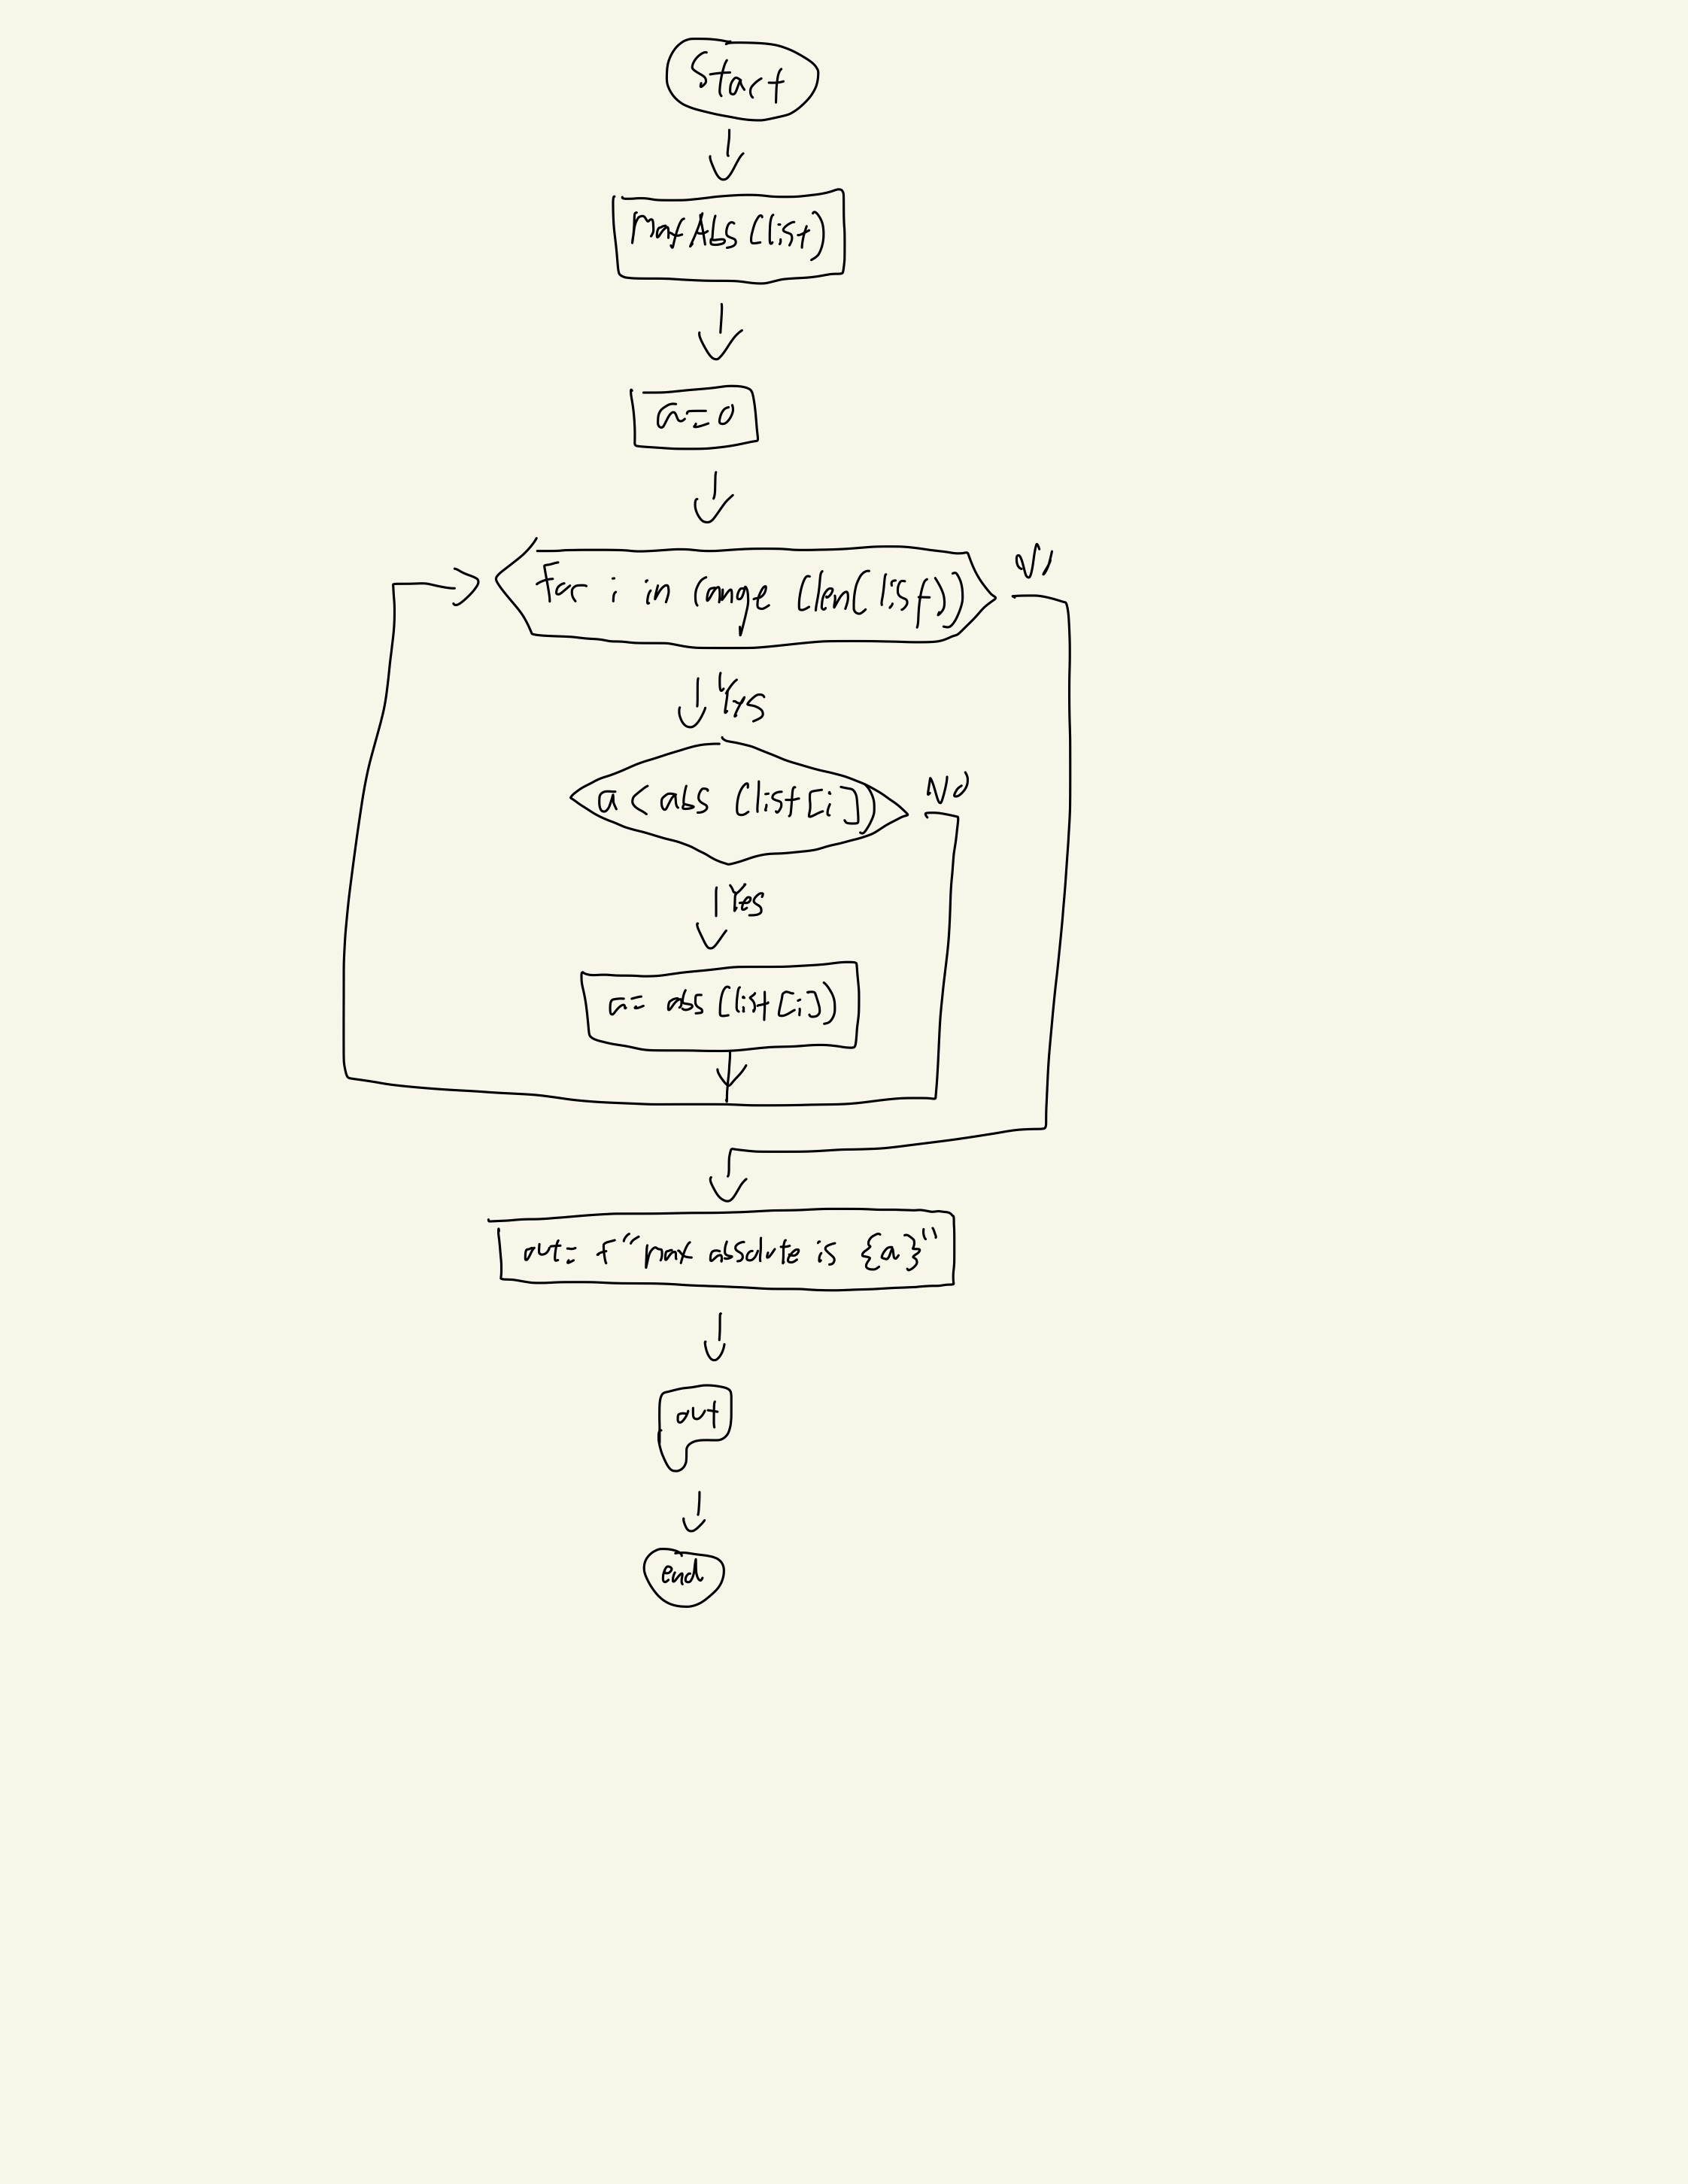 Start
MaxAbs (list)
a = 0
For i in range (len(list))
No
Yes
a < abs (list[i])
No
Yes
a = abs (list[i])
out = f"max absolute is {a}"
out
end